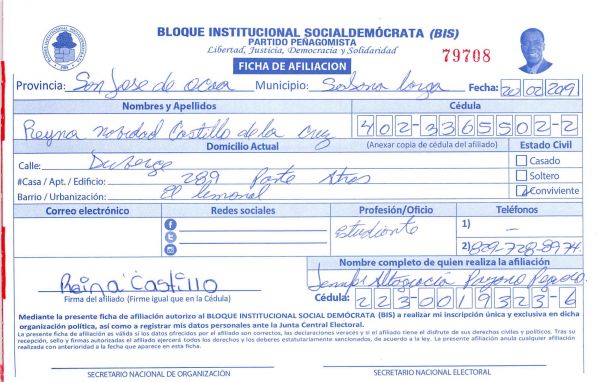 BLOQUE INSTITUCIONAL SOCIALDEMÓCRATA (BIS)
PARTIDO PEÑAGOMISTA
Libertad, Justicia, Democracia y Solidaridad
79708
FICHA DE AFILIACION
Provincia: San Jose de ocoa Municipio: Sabana larga Fecha: 20 02 2019
Nombres y Apellidos Cédula
Reyna nabidad Castillo de la Cruz 402-3365502-2
Domicilio Actual (Anexar copia de cédula del afiliado) Estado Civil
Calle: Duberge Casado
#Casa / Apt. / Edificio: 289 Parte Atras Soltero
Barrio / Urbanización: El limonal Conviviente
Correo electrónico Redes sociales Profesión/Oficio Teléfonos
Estudiante 1) -
2) 829-728-8974
Nombre completo de quien realiza la afiliación
Reina Castillo
Firma del afiliado (Firme igual que en la Cédula) Cédula: 223-0019323-6
Mediante la presente ficha de afiliación autorizo al BLOQUE INSTITUCIONAL SOCIAL DEMÓCRATA (BIS) a realizar mi inscripción única y exclusiva en dicha
organización política, así como a registrar mis datos personales ante la Junta Central Electoral.
La presente ficha de afiliación es válida si los datos ofrecidos por el afiliado son correctos, las declaraciones verces y si el afiliado tiene el disfrute de sus derechos civiles y políticos. Tras su
recepción, sello y firmas autorizadas el afiliado ejercerá todos los derechos y los deberes estatutariamente sancionados, de acuerdo a la ley. La presente afiliación anula cualquier afiliación
realizada con anterioridad a la fecha que aparece en esta ficha.
SECRETARIO NACIONAL DE ORGANIZACIÓN SECRETARIO NACIONAL ELECTORAL